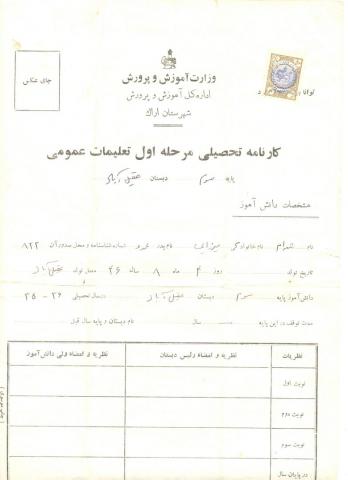 وزارت آموزش و پرورش
اداره کل آموزش و پرورش
شهرستان اراک
جای عکس
توانا
کارنامه تحصیلی مرحله اول تعلیمات عمومی
پایه سوم دبستان
مشخصات دانش آموز
نام نام خانوادگی نام پدر شماره شناسنامه و محل صدور آن ۸۲۲
تاریخ تولد روز ۴ ماه ۸ سال ۴۶ محل تولد
دانش آموز پایه سوم دبستان در سال تحصیلی ۳۶ - ۳۵
مدت توقف در این پایه سال نام دبستان و پایه سال قبل
نظریات نظریه و امضاء رئیس دبستان نظریه و امضاء ولی دانش آموز
نوبت اول
نوبت دوم
نوبت سوم
در پایان سال